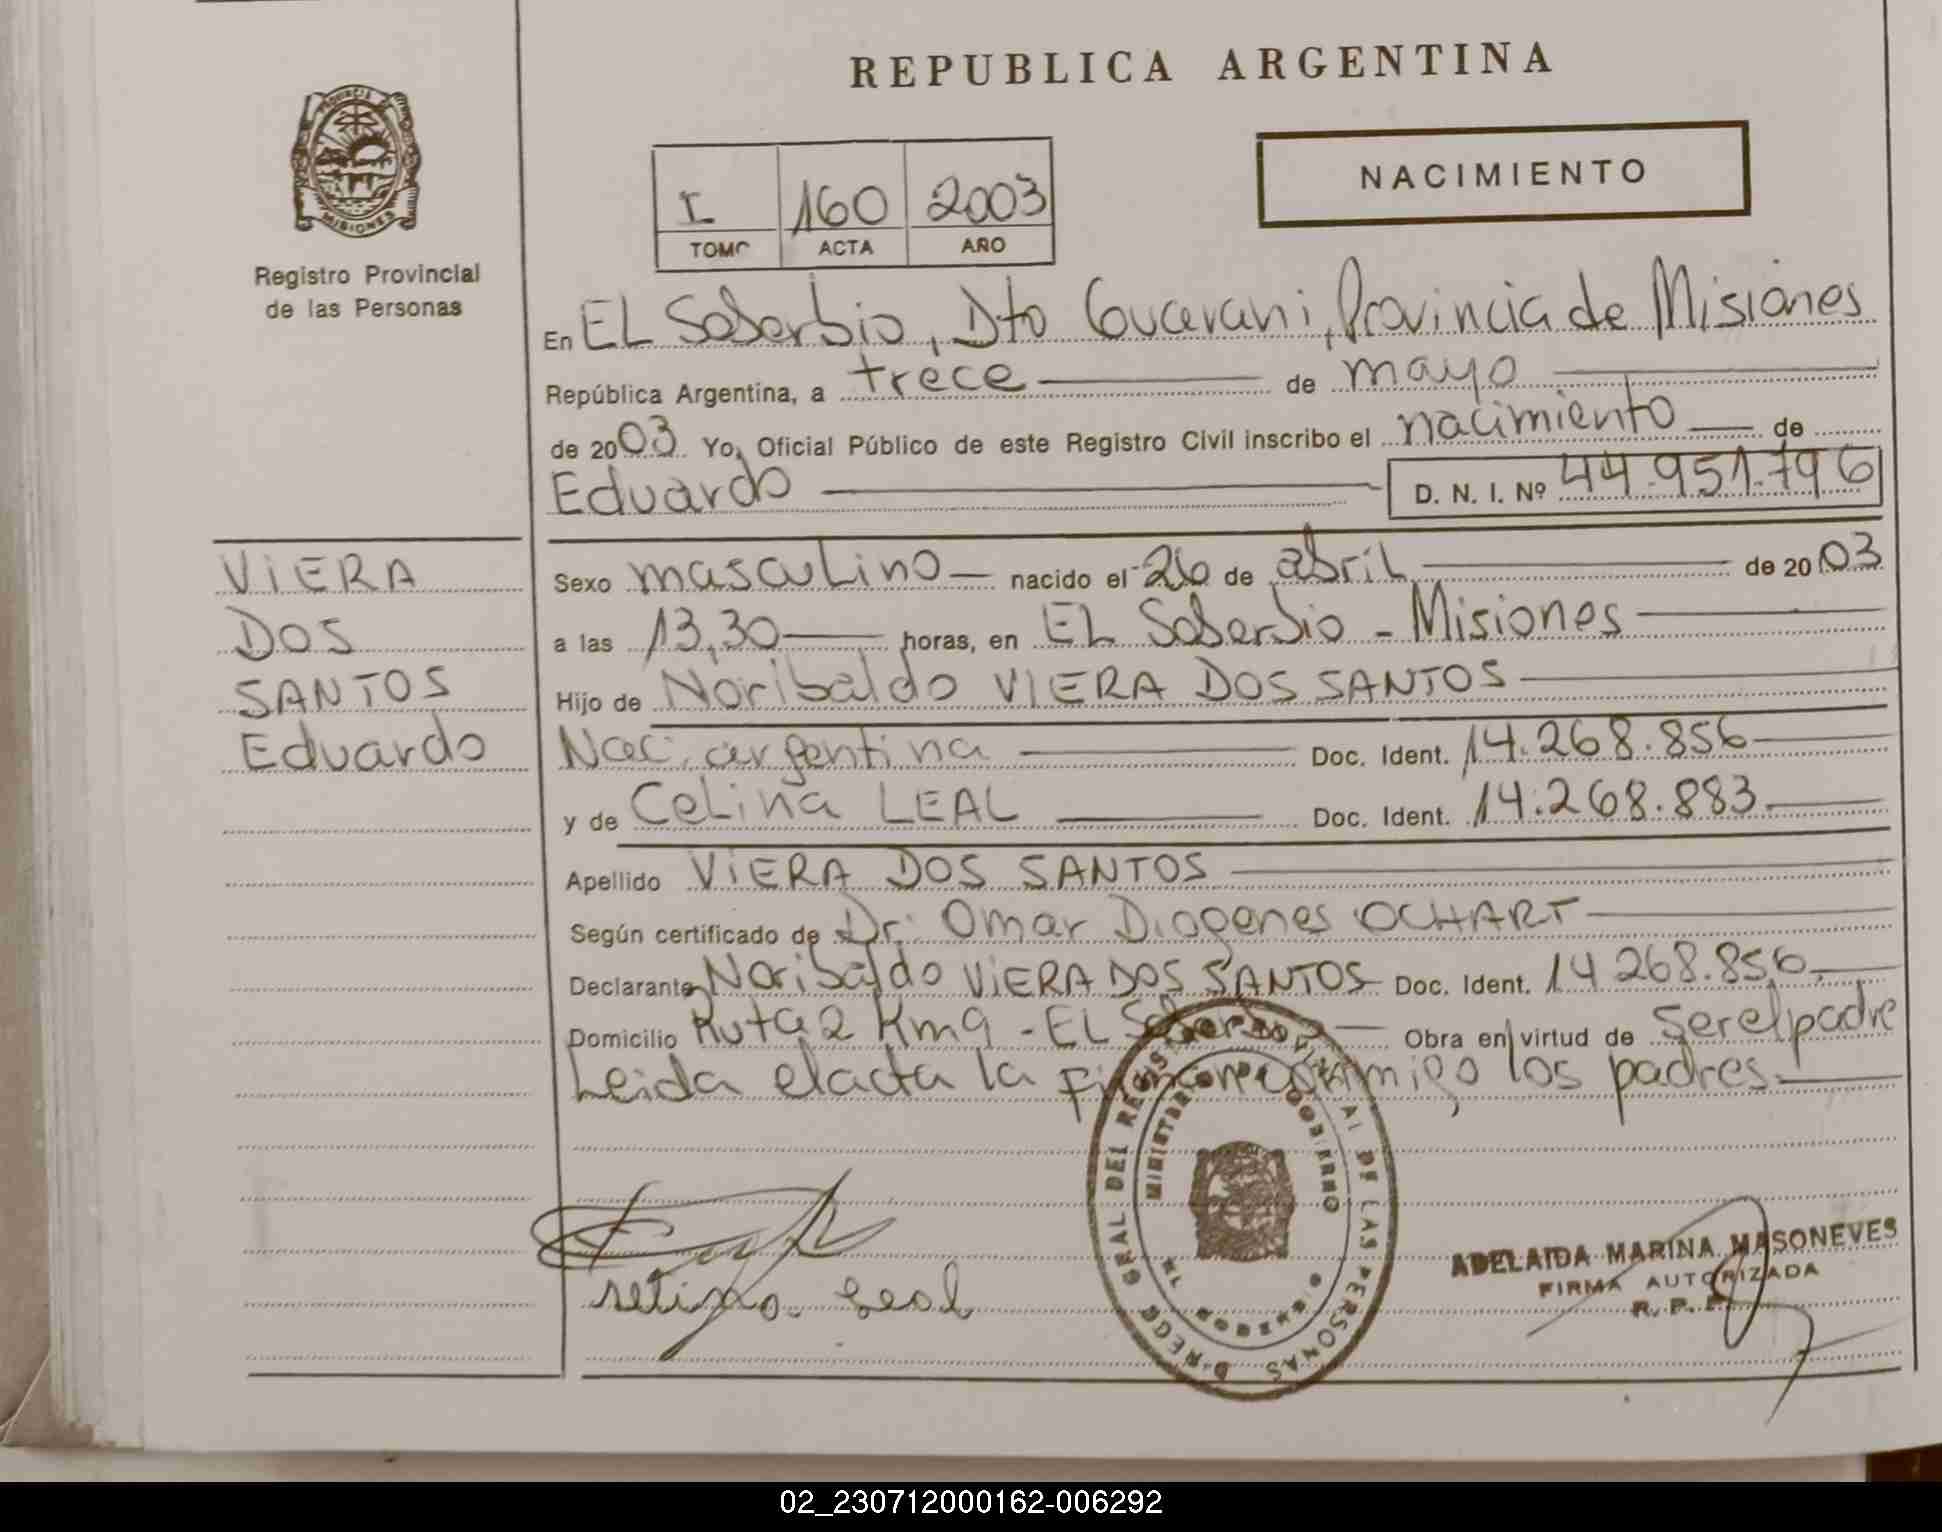 REPUBLICA ARGENTINA
PROVINCIA DE
MISIONES
Registro Provincial
de las Personas
I 160 2003
TOMO ACTA AÑO
NACIMIENTO
En EL Soberbio, Dto Guarani, Provincia de Misiones
República Argentina, a trece de mayo
de 2003 Yo, Oficial Público de este Registro Civil inscribo el nacimiento de
Eduardo D. N. I. Nº 44.951.796
VIERA
DOS
SANTOS
Eduardo
Sexo masculino nacido el 26 de abril de 2003
a las 13,30 horas, en EL Soberbio - Misiones
Hijo de Noribaldo VIERA DOS SANTOS
Nac. argentina Doc. Ident. 14.268.856
y de Celina LEAL Doc. Ident. 14.268.883
Apellido VIERA DOS SANTOS
Según certificado de Dr. Omar Diogenes OCHART
Declarante Noribaldo VIERA DOS SANTOS Doc. Ident. 14.268.856
Domicilio Ruta 2 Km 9 - EL Soberbio Obra en virtud de ser el padre
Leida el acta la firman conmigo los padres.
DIRECC GRAL DEL REGISTRO PROVINCIAL DE LAS PERSONAS
MINISTERIO DE GOBIERNO
EL SOBERBIO
Leal
ADELAIDA MARINA MASONEVES
FIRMA AUTORIZADA
R. P. P.
02_230712000162-006292